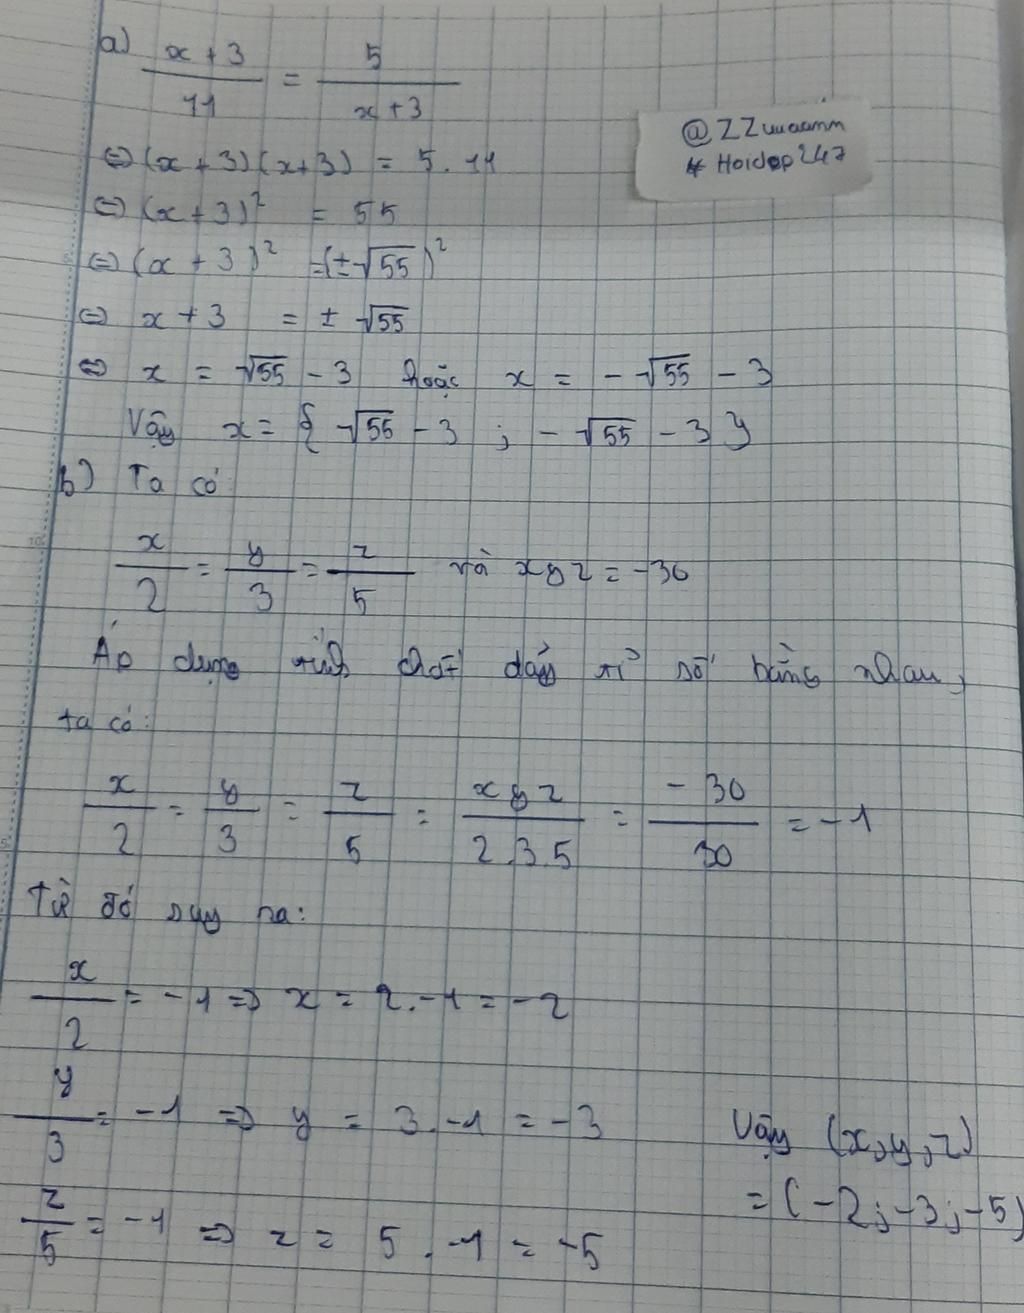 a) x + 3 / 11 = 5 / x + 3
@ZZuuaamm
# Hoidap247
⇔ (x + 3)(x + 3) = 5 . 11
⇔ (x + 3)² = 55
⇔ (x + 3)² = (±√55)²
⇔ x + 3 = ± √55
⇔ x = √55 - 3 hoặc x = - √55 - 3
Vậy x = { √55 - 3 ; - √55 - 3 }
b) Ta có
x / 2 = y / 3 = z / 5 và xyz = -30
Áp dụng tính chất dãy tỉ số bằng nhau,
ta có:
x / 2 = y / 3 = z / 5 = xyz / 2.3.5 = - 30 / 30 = -1
Từ đó suy ra:
x / 2 = -1 => x = 2. -1 = -2
y / 3 = -1 => y = 3. -1 = -3
Vậy (x, y, z)
= (-2; -3; -5)
z / 5 = -1 => z = 5 . -1 = -5